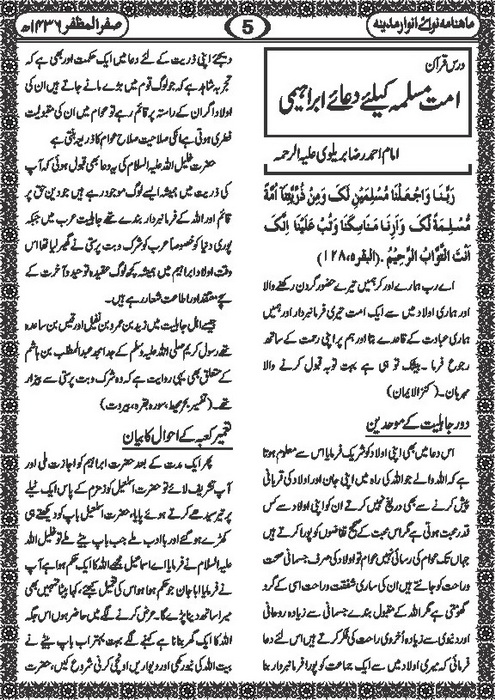 ماہنامہ نوائے انوار مدینہ
5
صفر المظفر ۱۴۳۶ھ
درس قرآن
امت مسلمہ کیلئے دعائے ابراہیمی
امام احمد رضا بریلوی علیہ الرحمہ
رَبَّنَا وَاجْعَلْنَا مُسْلِمَيْنِ لَكَ وَمِنْ ذُرِّيَّتِنَا أُمَّةً
مُّسْلِمَةً لَّكَ وَأَرِنَا مَنَاسِكَنَا وَتُبْ عَلَيْنَا إِنَّكَ
أَنْتَ التَّوَّابُ الرَّحِيْمُ۔ (البقرہ،۱۲۸)
اے رب ہمارے اور کر ہمیں تیرے حضور گردن رکھنے والا
اور ہماری اولاد میں سے ایک امت تیری فرمانبردار اور ہمیں
ہماری عبادت کے قاعدے بتا اور ہم پر اپنی رحمت کے ساتھ
رجوع فرما۔ بیشک تو ہی ہے بہت توبہ قبول کرنے والا
مہربان۔ (کنزالایمان)
دور جاہلیت کے موحدین
اس دعا میں بھی اپنی اولاد کو شریک فرمایا اس سے معلوم ہوتا
ہے کہ اللہ والے جو اللہ کی راہ میں اپنی جان اور اولاد کی قربانی
پیش کرنے سے بھی دریغ نہیں کرتے ان کو اپنی اولاد سے کس
قدر محبت ہوتی ہے مگر اس محبت کے صحیح تقاضوں کو پورا کرتے ہیں
جہاں تک عوام کی رسائی نہیں عوام تو اولاد کی صرف جسمانی صحت
و راحت کو جانتے ہیں ان کی ساری شفقت و راحت اسی کے گرد
گھومتی ہے مگر اللہ کے مقبول بندے جسمانی سے زیادہ روحانی
اور دنیوی سے زیادہ اُخروی راحت کی فکر کرتے ہیں اس لئے دعا
فرمائی کہ میری اولاد میں سے ایک جماعت کو پورا فرمانبردار بنا
دیجئے اپنی ذریت کے لئے دعا میں ایک حکمت اور بھی ہے کہ
تجربہ شاہد ہے کہ جو لوگ قوم میں بڑے مانے جاتے ہیں ان
کی اولاد اگر ان کے راستہ پر قائم رہے تو عوام میں ان کی مقبولیت
فطری ہوتی ہے انکی صلاحیت صلاح عوام کا ذریعہ بنتی ہے
حضرت خلیل اللہ علیہ السلام کی یہ دعا بھی قبول ہوئی کہ آپ
کی ذریت میں ہمیشہ ایسے لوگ موجود رہے ہیں جو دین حق پر
قائم اور اللہ کے فرمانبردار بندے تھے جاہلیت عرب میں جبکہ
پوری دنیا کو خصوصاً عرب کو شرک و بت پرستی نے گھیر لیا تھا اس
وقت اولاد ابراہیم میں ہمیشہ کچھ لوگ عقیدہ توحید و آخرت کے
سچے معتقد اور اطاعت شعار رہے ہیں۔
جیسے اہل جاہلیت میں زید بن عمرو بن نفیل اور قیس بن ساعدہ
تھے رسول کریم صلی اللہ علیہ وسلم کے جد امجد عبدالمطلب بن ہاشم
کے متعلق بھی یہی روایت ہے کہ وہ شرک و بت پرستی سے بیزار
تھے۔ (تفسیر بحر محیط، سورہ بقرہ، بیروت)
تعمیر کعبہ کے احوال کا بیان
پھر ایک مدت کے بعد حضرت ابراہیم کو اجازت ملی اور
آپ تشریف لائے تو حضرت اسمٰعیل کو زمزم کے پاس ایک ٹیلے
پر تیر سیدھے کرتے ہوئے پایا، حضرت اسمٰعیل باپ کو دیکھتے ہی
کھڑے ہو گئے اور باادب ملے جب باپ بیٹے ملے تو خلیل اللہ
علیہ السلام نے فرمایا اے اسماعیل مجھے اللہ کا ایک حکم ہوا ہے آپ
نے فرمایا ابا جان جو حکم ہوا ہو اس کی تعمیل کیجئے، کہا بیٹا تمہیں بھی
میرا ساتھ دینا پڑے گا۔ عرض کرنے لگے میں حاضر ہوں اس جگہ
اللہ کا ایک گھر بنانا ہے کہنے لگے بہت بہتر اب باپ بیٹے نے
بیت اللہ کی نیو رکھی اور دیواریں اونچی کرنی شروع کیں، حضرت